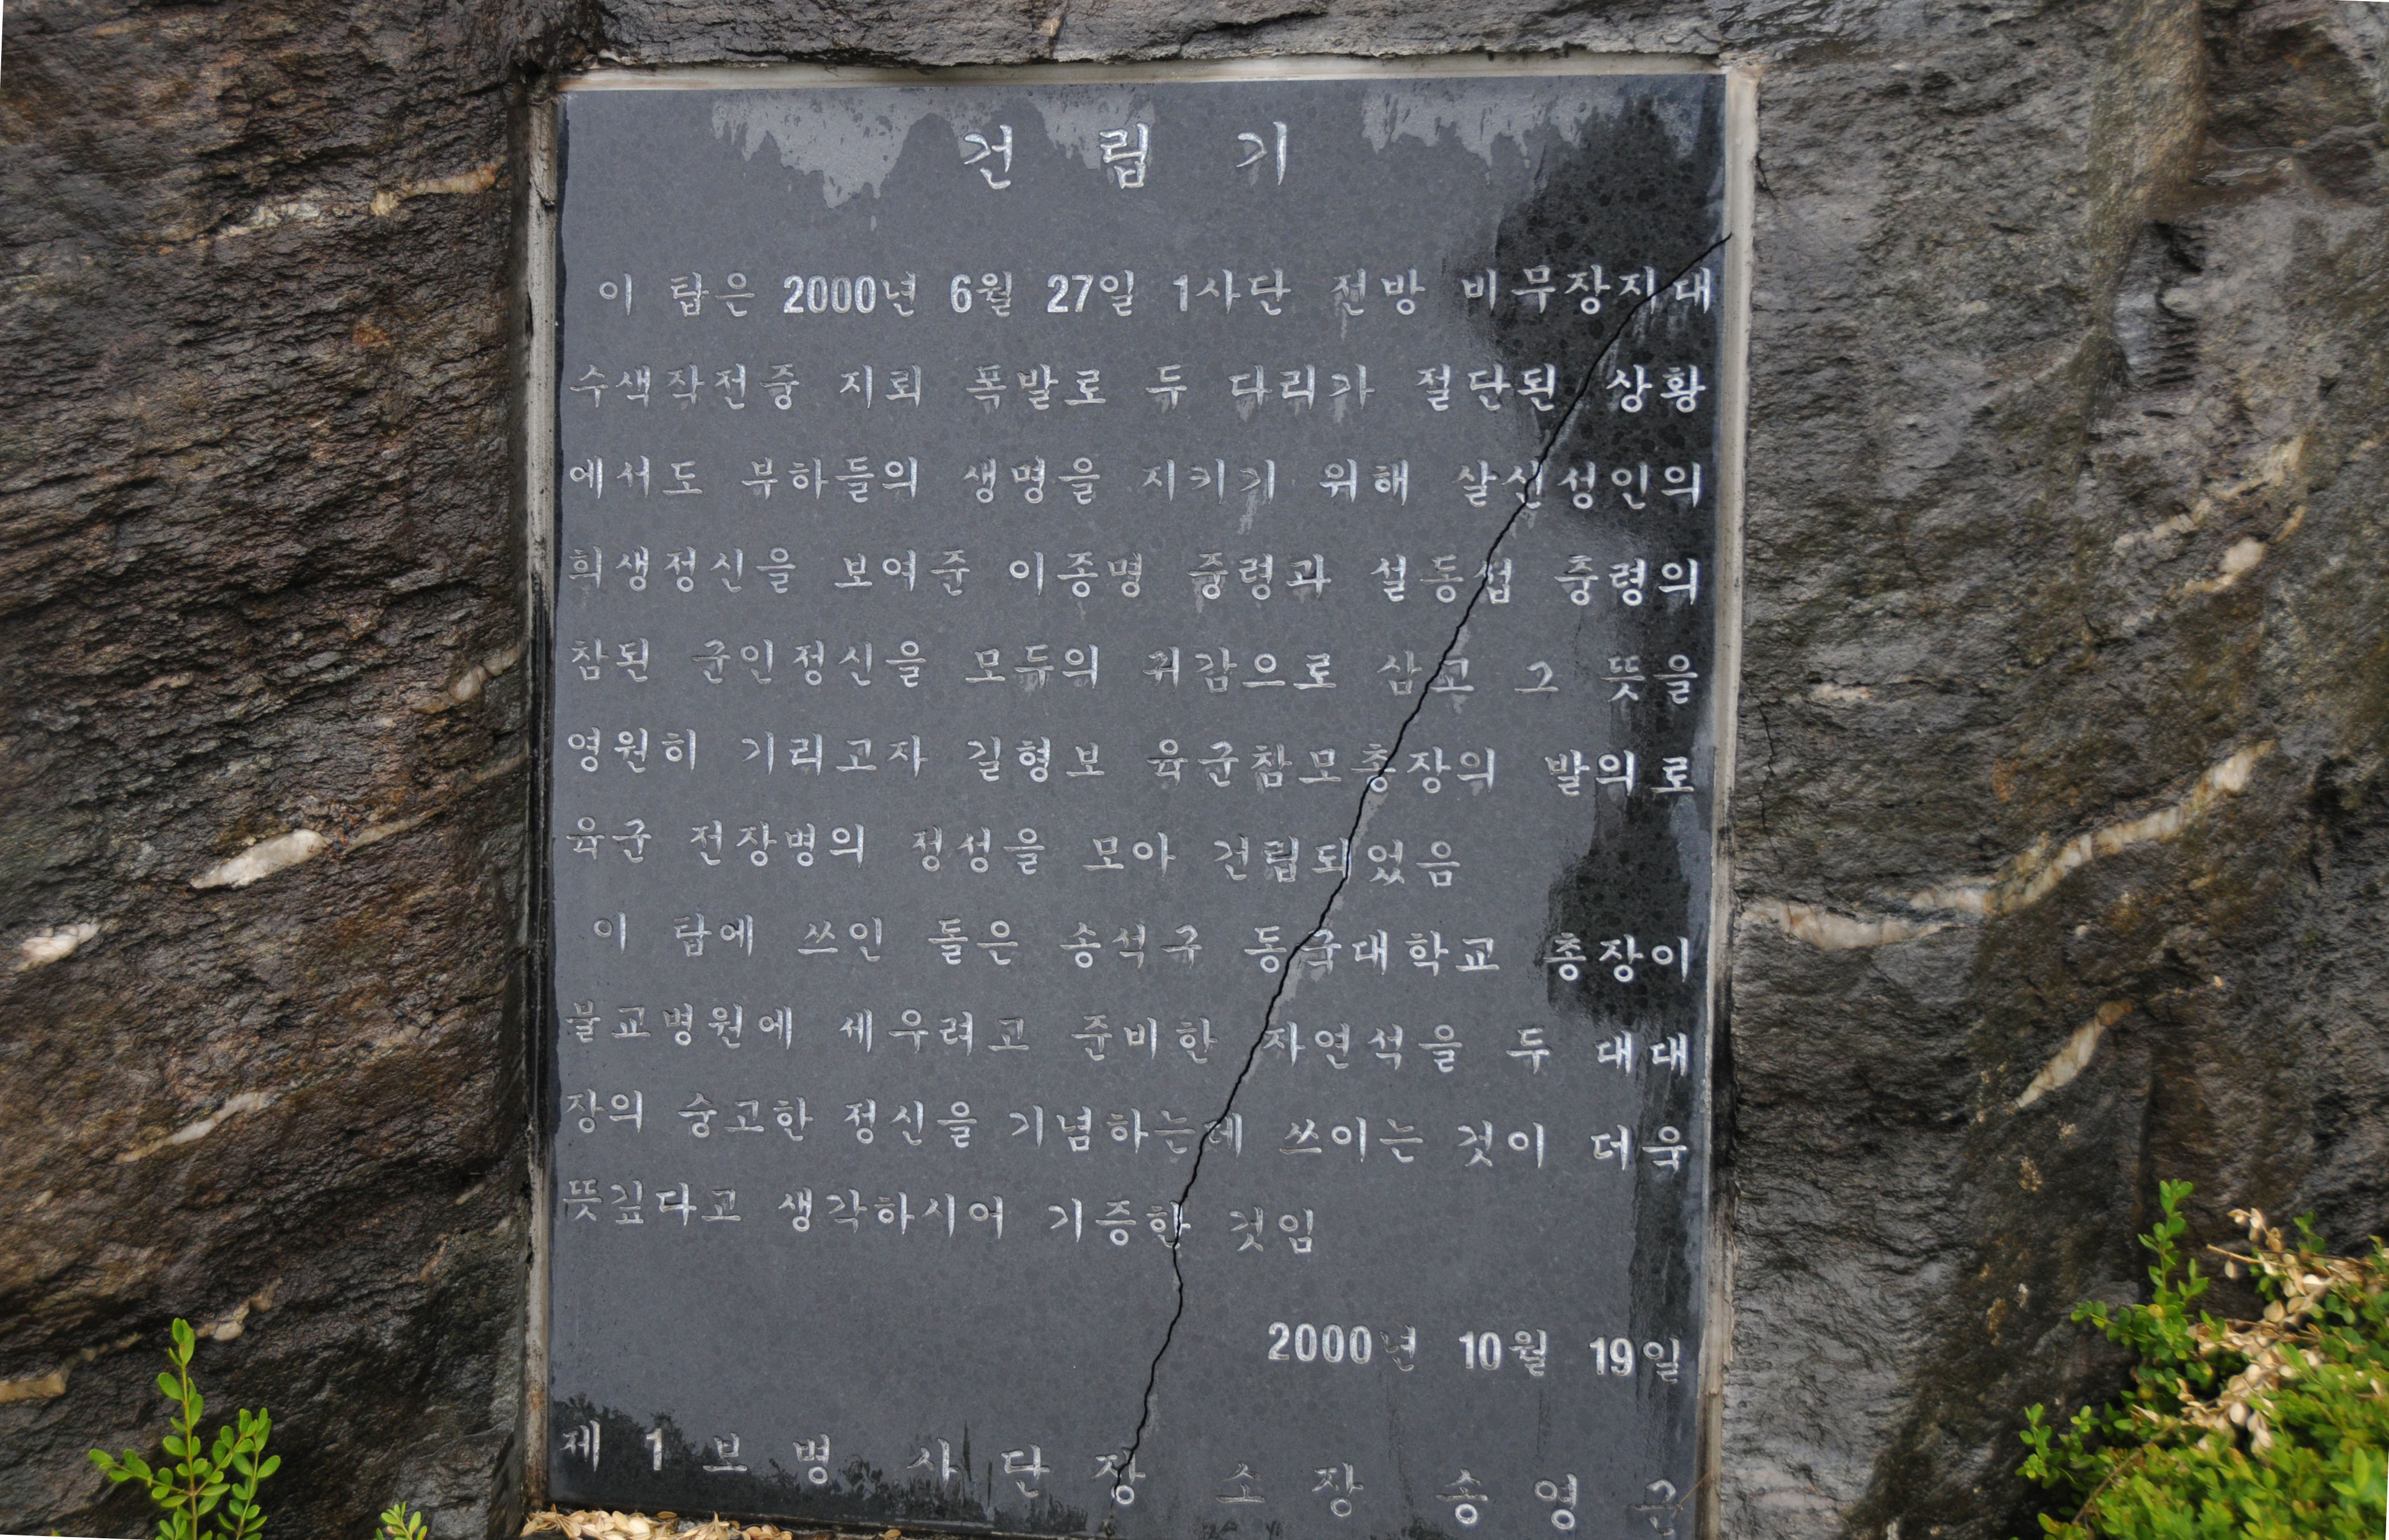 건 립 기
이 탑은 2000년 6월 27일 1사단 전방 비무장지대
수색작전중 지뢰 폭발로 두 다리가 절단된 상황
에서도 부하들의 생명을 지키기 위해 살신성인의
희생정신을 보여준 이종명 중령과 설동섭 중령의
참된 군인정신을 모두의 귀감으로 삼고 그 뜻을
영원히 기리고자 길형보 육군참모총장의 발의로
육군 전장병의 정성을 모아 건립되었음
이 탑에 쓰인 돌은 송석구 동국대학교 총장이
불교병원에 세우려고 준비한 자연석을 두 대대
장의 숭고한 정신을 기념하는데 쓰이는 것이 더욱
뜻깊다고 생각하시어 기증한 것임
2000년 10월 19일
제 1 보 병 사 단 장 소 장 송 영 근